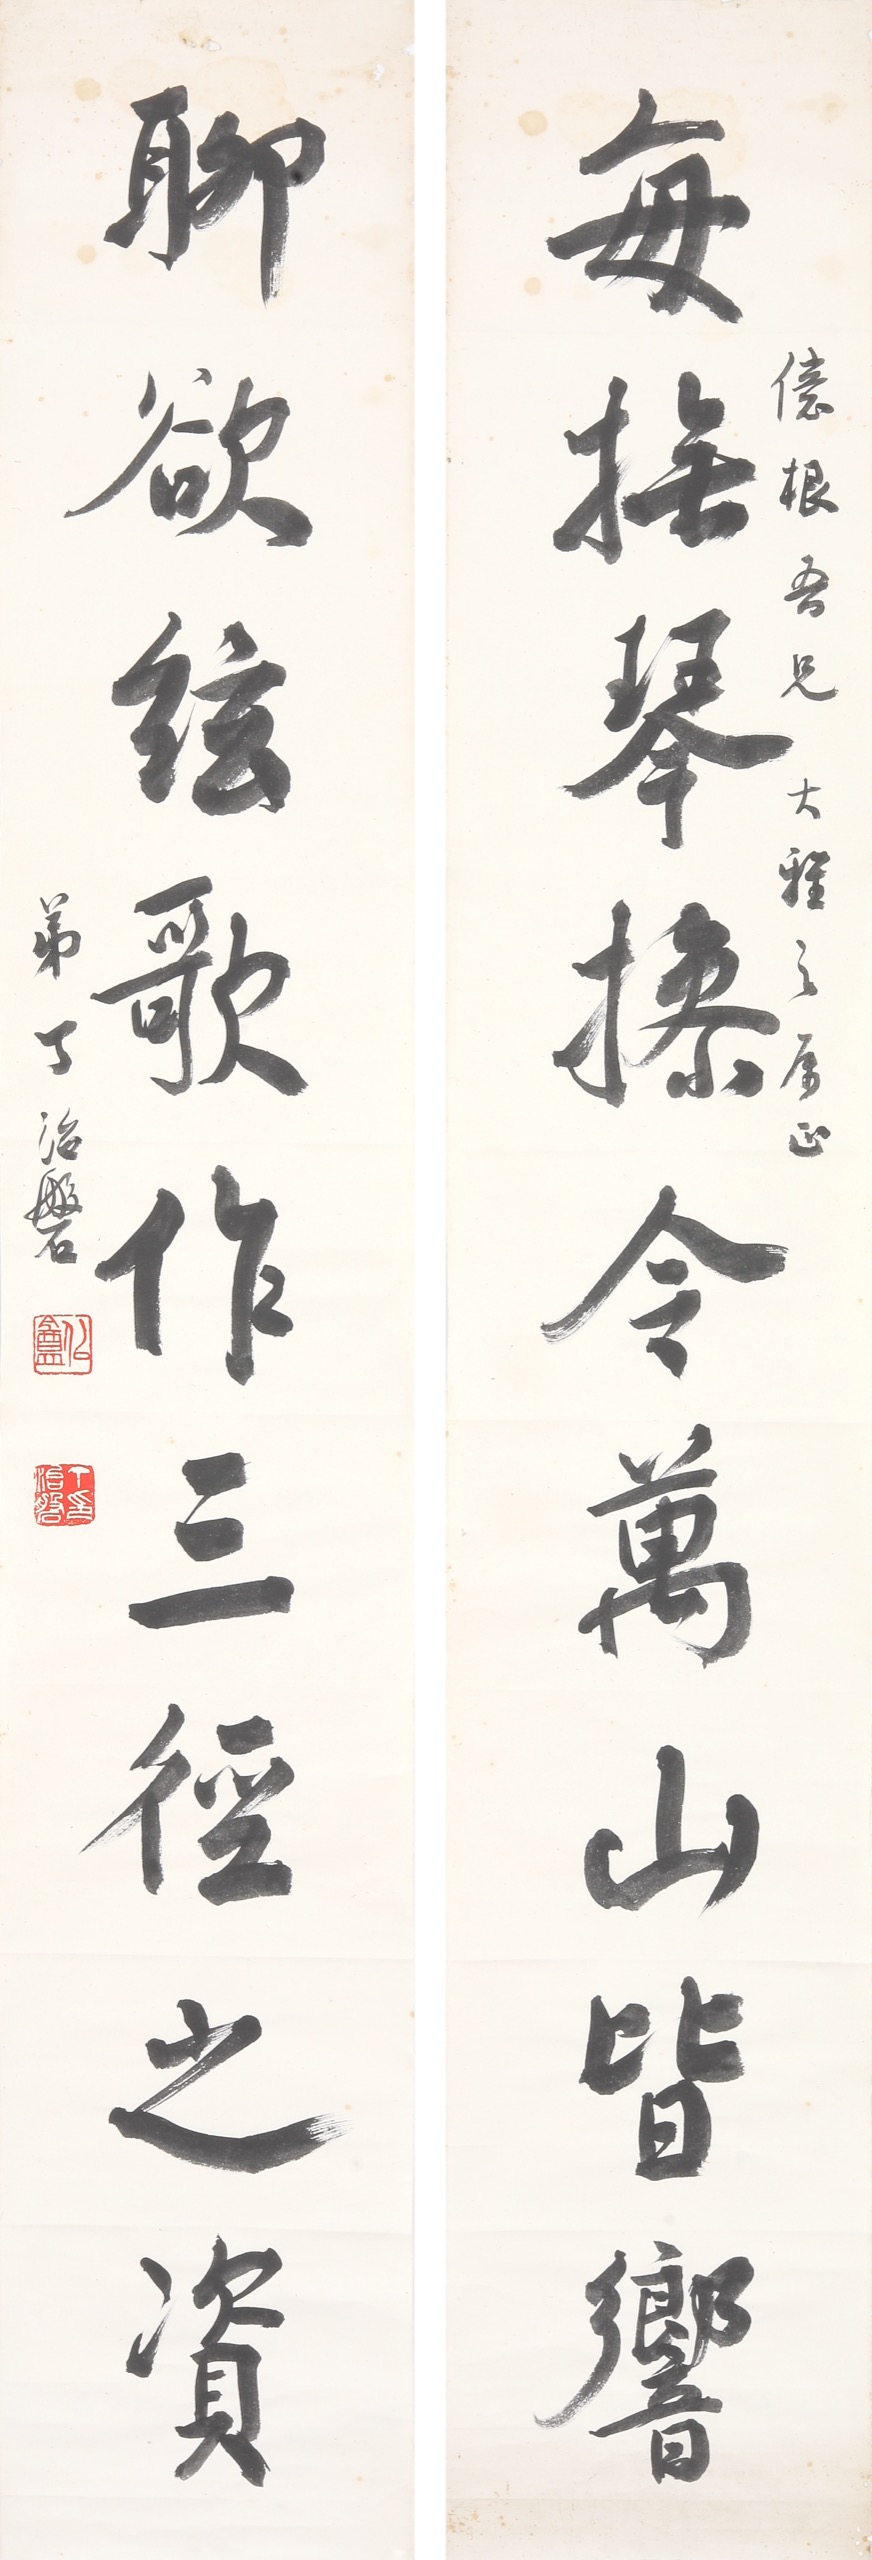 每撫琴操令萬山皆響
億根吾兄 大雅之屬正
聊欲絃歌作三徑之資
弟丁治磐
丁治磐印